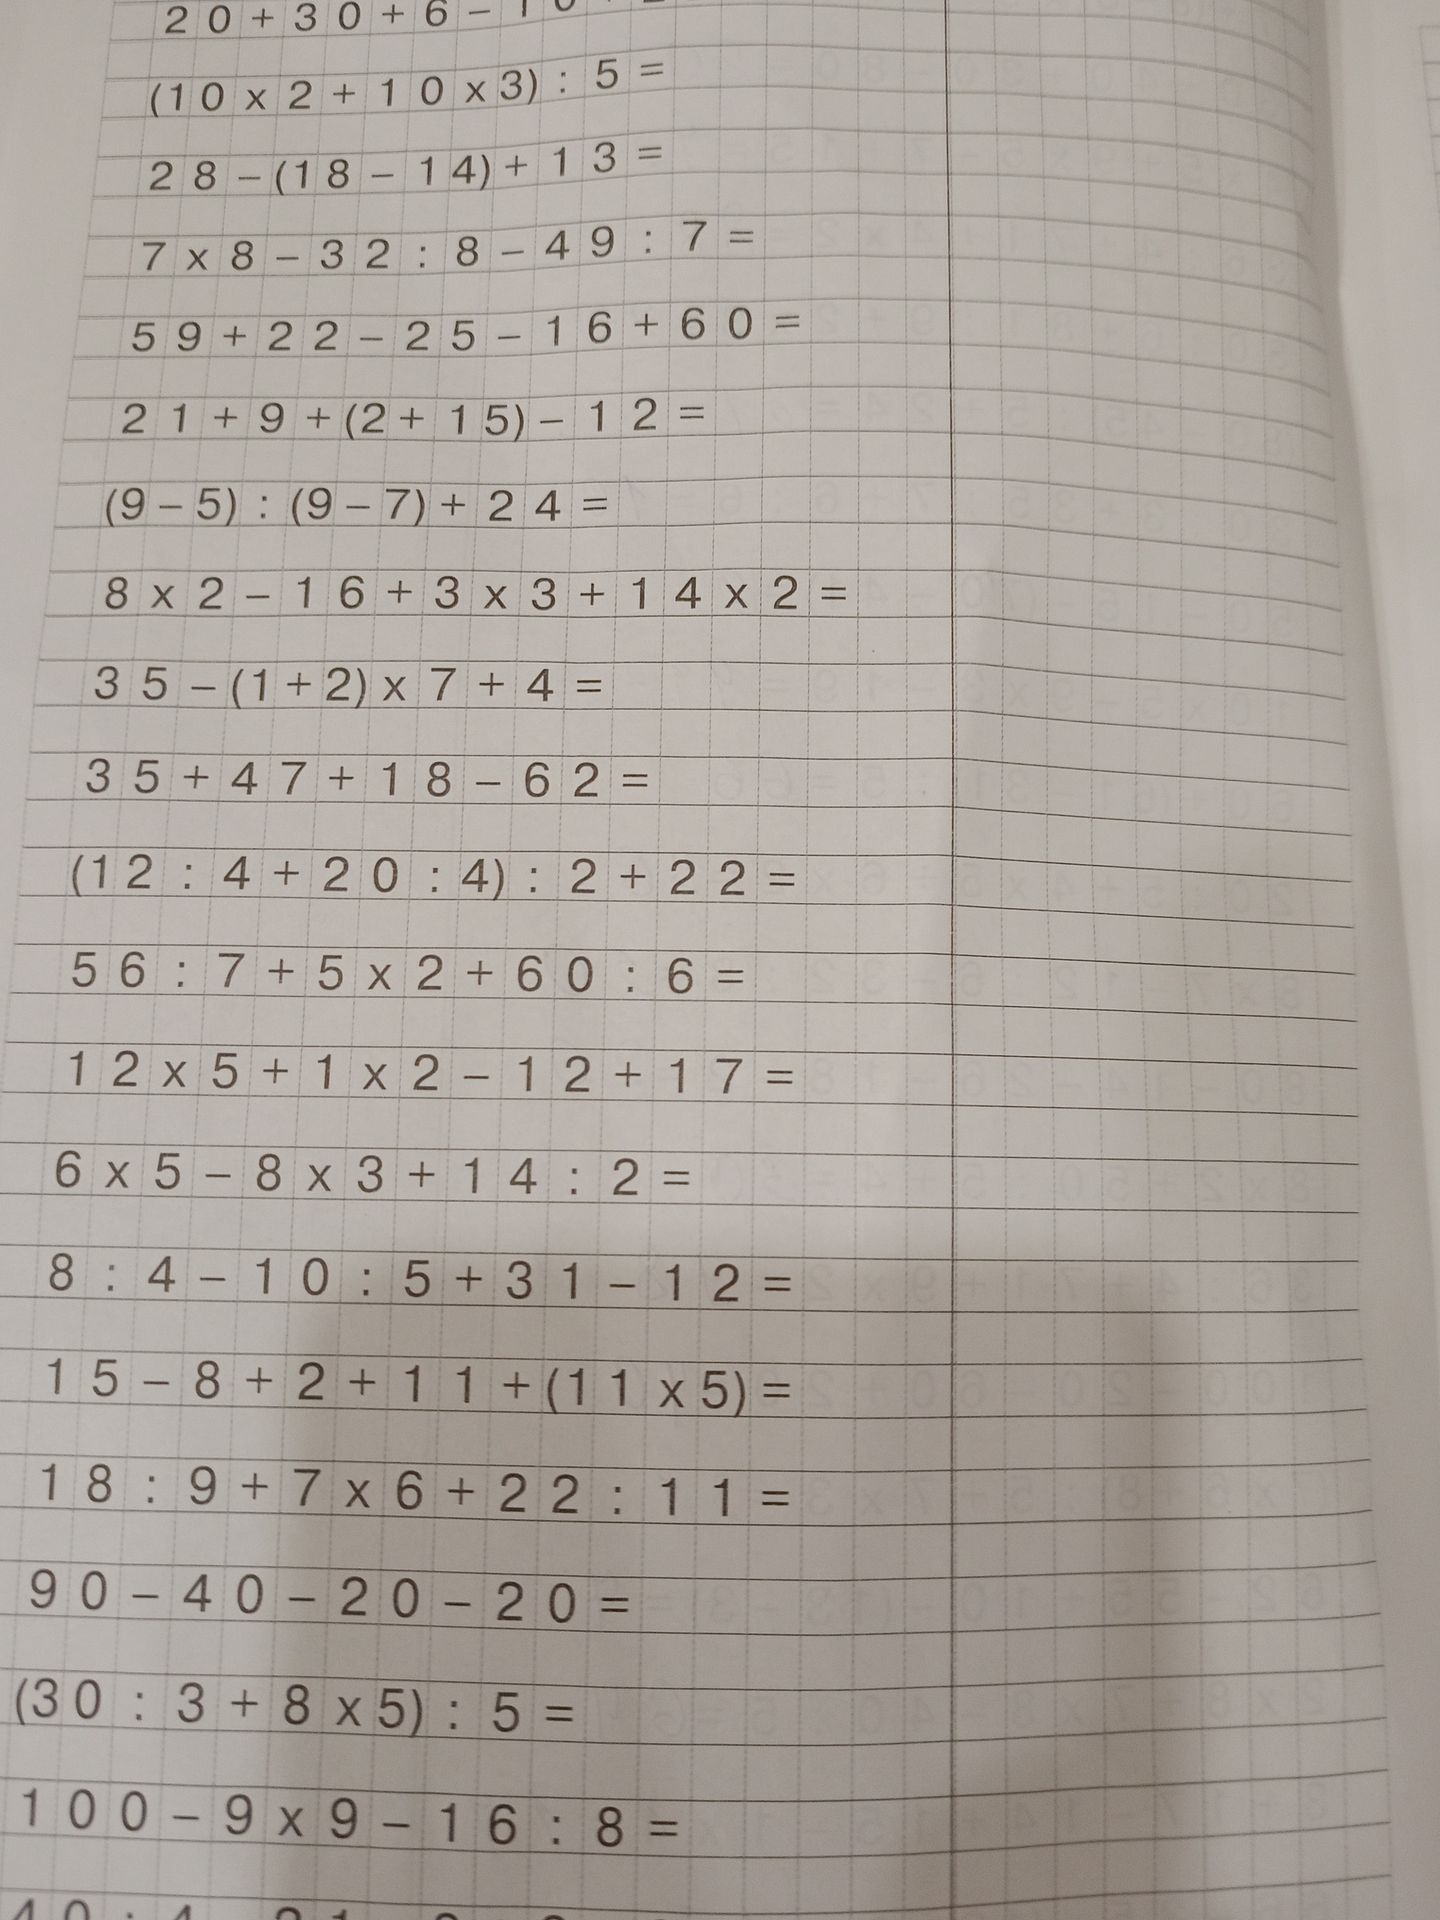 20+30+6-10
(10x2+10x3):5=
28-(18-14)+13=
7x8-32:8-49:7=
59+22-25-16+60=
21+9+(2+15)-12=
(9-5):(9-7)+24=
8x2-16+3x3+14x2=
35-(1+2)x7+4=
35+47+18-62=
(12:4+20:4):2+22=
56:7+5x2+60:6=
12x5+1x2-12+17=
6x5-8x3+14:2=
8:4-10:5+31-12=
15-8+2+11+(11x5)=
18:9+7x6+22:11=
90-40-20-20=
(30:3+8x5):5=
100-9x9-16:8=